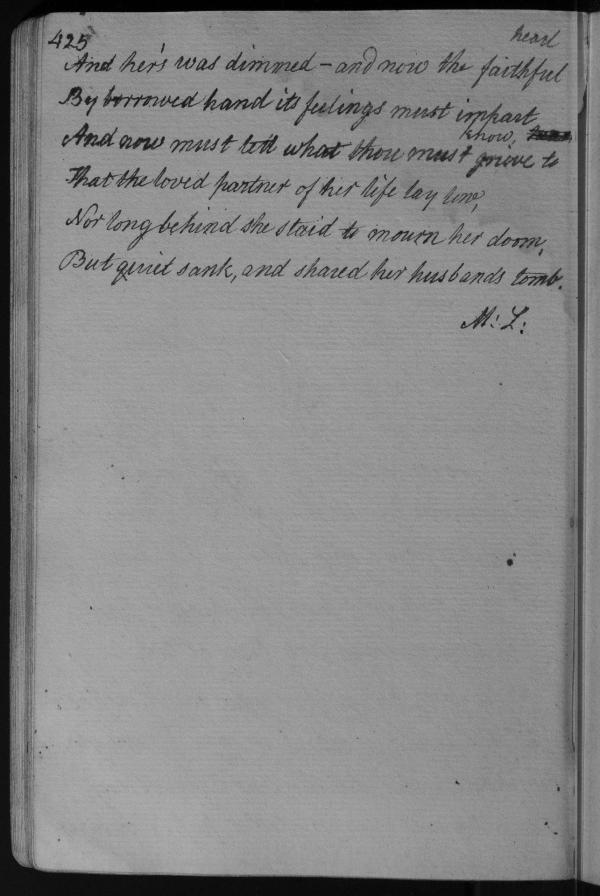 425
heart
And her's was dimmed – and now the faithful
By borrowed hand its feelings must impart
know,
And now must tell what thou must grieve to
That the loved partner of her life lay low,
Nor long behind she staid to mourn her doom,
But quiet sank, and shared her husbands tomb.
M: L: